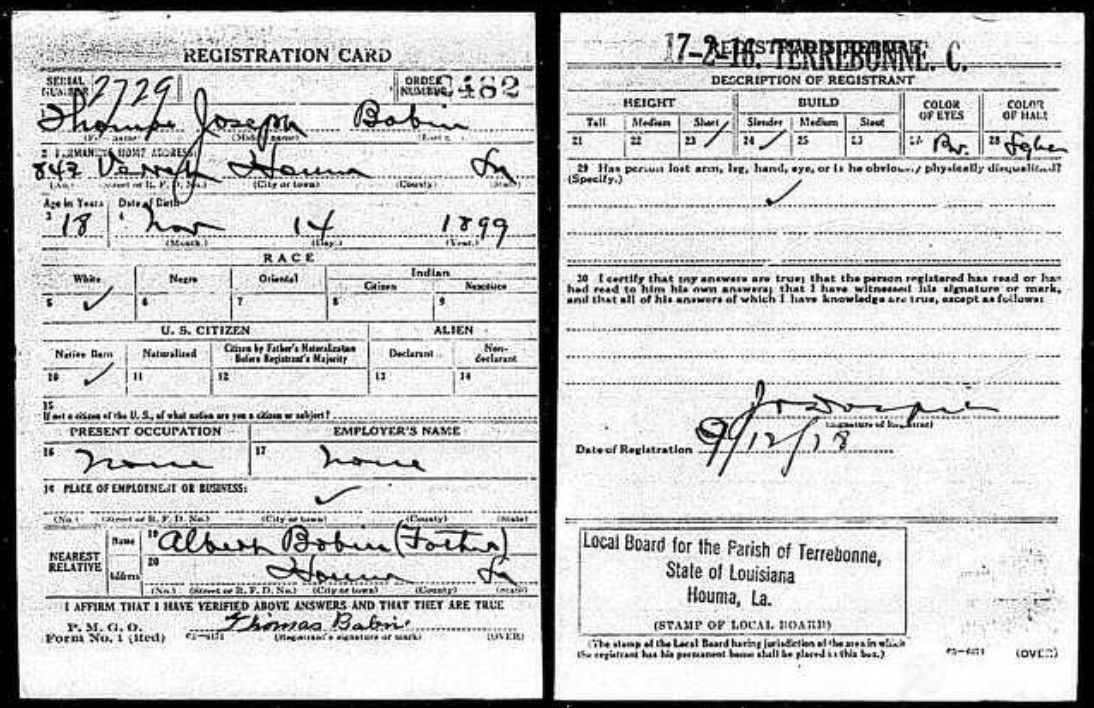 REGISTRATION CARD
SERIAL NUMBER 2729 ORDER NUMBER 3482
Joseph Babin
(Middle name) (Last name)
2 PERMANENT HOME ADDRESS:
843 Verret Houma La
(No.) (Street or R. F. D. No.) (City or town) (County) (State)
Age in Years Date of Birth
3 18 4 Nov 14 1899
(Month.) (Day.) (Year.)
RACE
White Negro Oriental Indian
Citizen Noncitizen
5 ✓ 6 7 8 9
U. S. CITIZEN ALIEN
Native Born Naturalized Citizen by Father's Naturalization Before Registrant's Majority Declarant Non-declarant
10 ✓ 11 12 13 14
15
If not a citizen of the U. S., of what nation are you a citizen or subject?
PRESENT OCCUPATION EMPLOYER'S NAME
16 none 17 none
18 PLACE OF EMPLOYMENT OR BUSINESS:
✓
(No.) (Street or R. F. D. No.) (City or town) (County) (State)
NEAREST RELATIVE Name 19 Albert Babin (Father)
Address 20 Houma La
(No.) (Street or R. F. D. No.) (City or town) (County) (State)
I AFFIRM THAT I HAVE VERIFIED ABOVE ANSWERS AND THAT THEY ARE TRUE
P. M. G. O.
Form No. 1 (Red) Thomas Babin
(Registrant's signature or mark) (OVER)
17-2-16. TERREBONNE. C.
DESCRIPTION OF REGISTRANT
HEIGHT BUILD COLOR OF EYES COLOR OF HAIR
Tall Medium Short Slender Medium Stout
21 22 23 ✓ 24 ✓ 25 27 Br. 28
29 Has person lost arm, leg, hand, eye, or is he obviously physically disqualified?
(Specify.)
✓
30 I certify that my answers are true; that the person registered has read or has
had read to him his own answers; that I have witnessed his signature or mark,
and that all of his answers of which I have knowledge are true, except as follows:
(Signature of Registrar)
Date of Registration 9/12/18
Local Board for the Parish of Terrebonne,
State of Louisiana
Houma, La.
(STAMP OF LOCAL BOARD)
(The stamp of the Local Board having jurisdiction of the area in which
the registrant has his permanent home shall be placed in this box.)
(OVER)